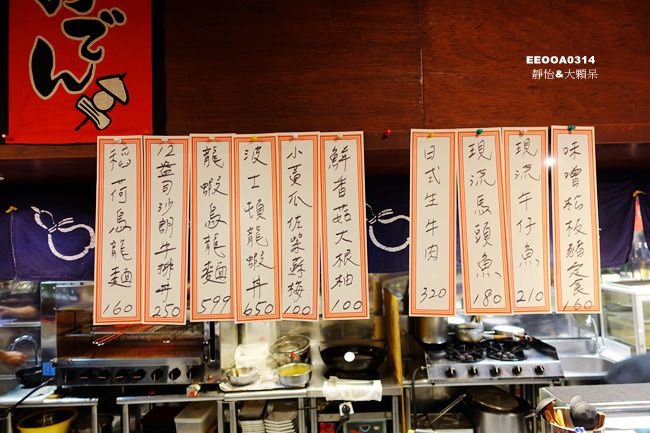 おでん
EEOOA0314
靜怡&大顆呆
味噌松板豬定食 160
現流牛仔魚 210
現流馬頭魚 180
日式生牛肉 320
鮮香菇大根柚 100
小黃瓜佐柴蘇梅 100
波士頓龍蝦丼 650
龍蝦烏龍麵 599
12盎司沙朗牛排丼 250
稻荷烏龍麵 160